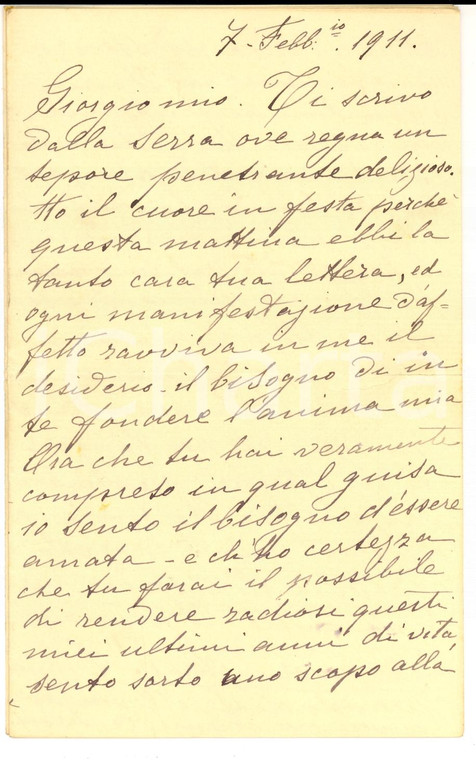 7. Febb.io. 1911.
Giorgio mio. Ti scrivo
dalla serra ove regna un
tepore penetrante delizioso.
Ho il cuore in festa perchè
questa mattina ebbi la
tanto cara tua lettera, ed
ogni manifestazione d'af-
fetto ravviva in me il
desiderio - il bisogno di in
te fondere l'anima mia
Ora che tu hai veramente
compreso in qual guisa
io sento il bisogno d'éssere
amata - e ch'ho certezza
che tu farai il possibile
di rendere radiosi questi
miei ultimi anni di vita,
sento sorto uno scopo alla